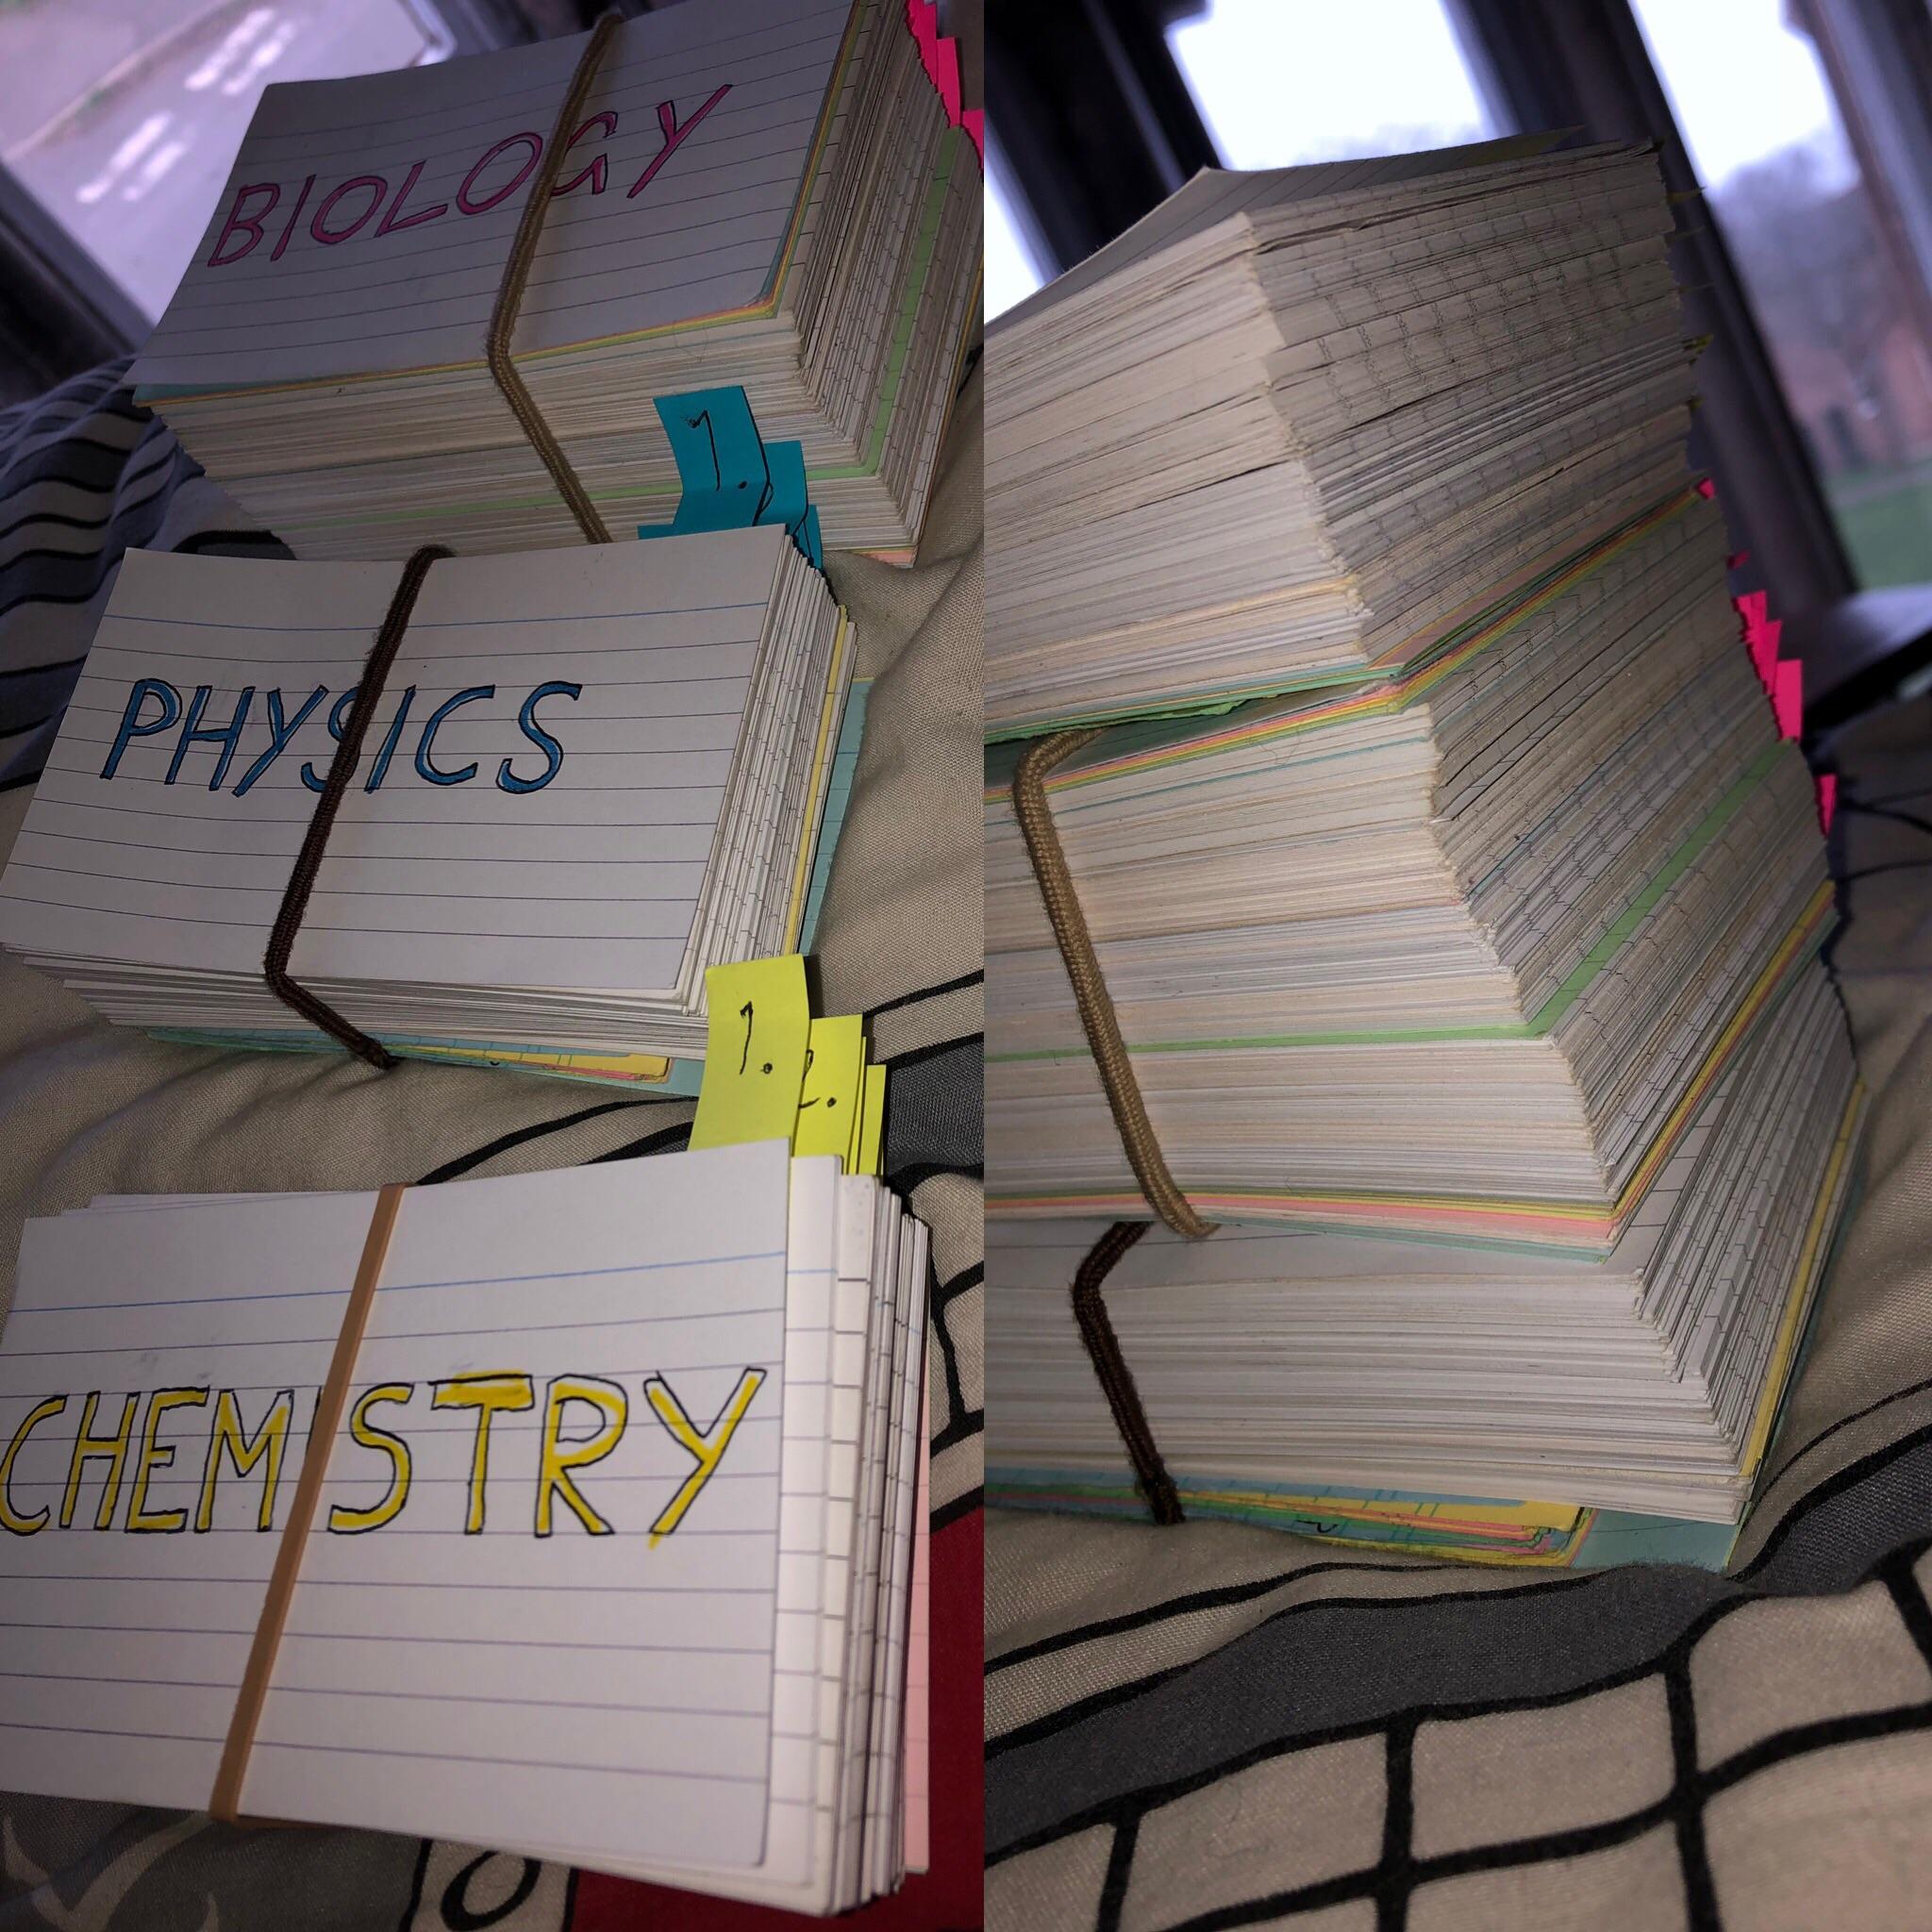 BIOLOGY
1.
PHYSICS
1.
CHEMISTRY